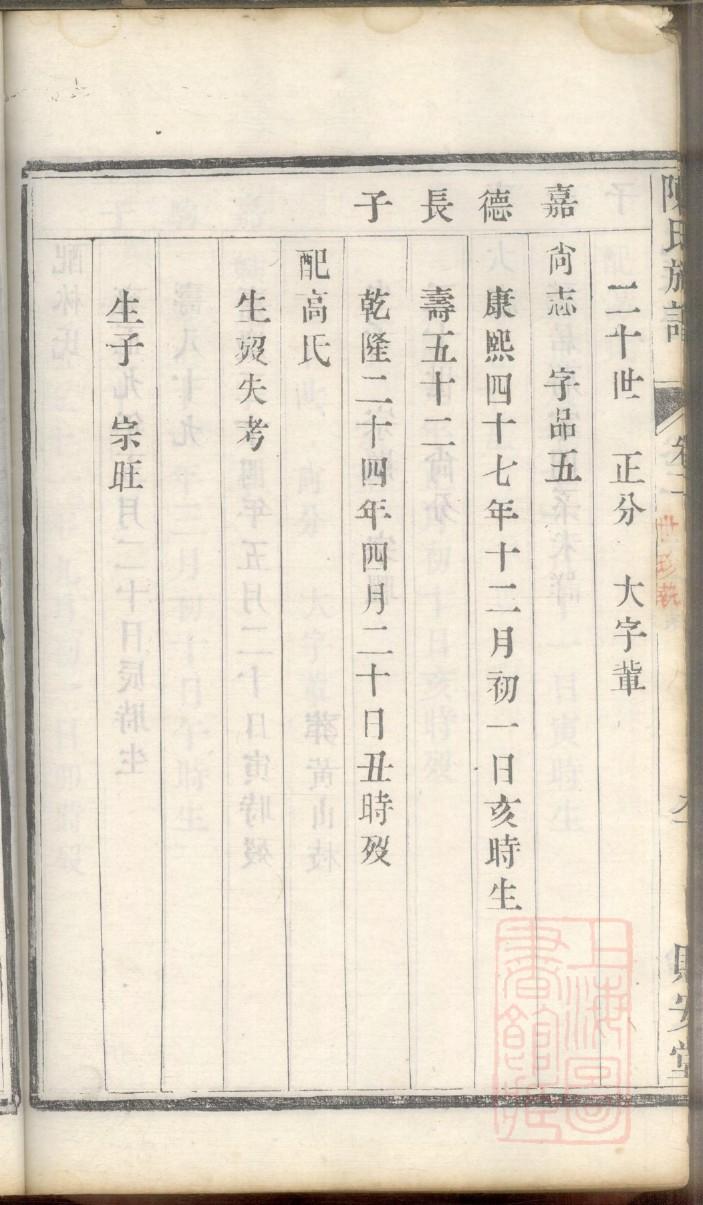 陳氏族譜
卷二
世珍執
二十世 正分 大字輩
嘉 尙志 字品五
德 康熙四十七年十二月初一日亥時生
長 壽五十二
子 乾隆二十四年四月二十日丑時歿
配高氏
生歿失考
生子 崇旺
上海圖書館藏